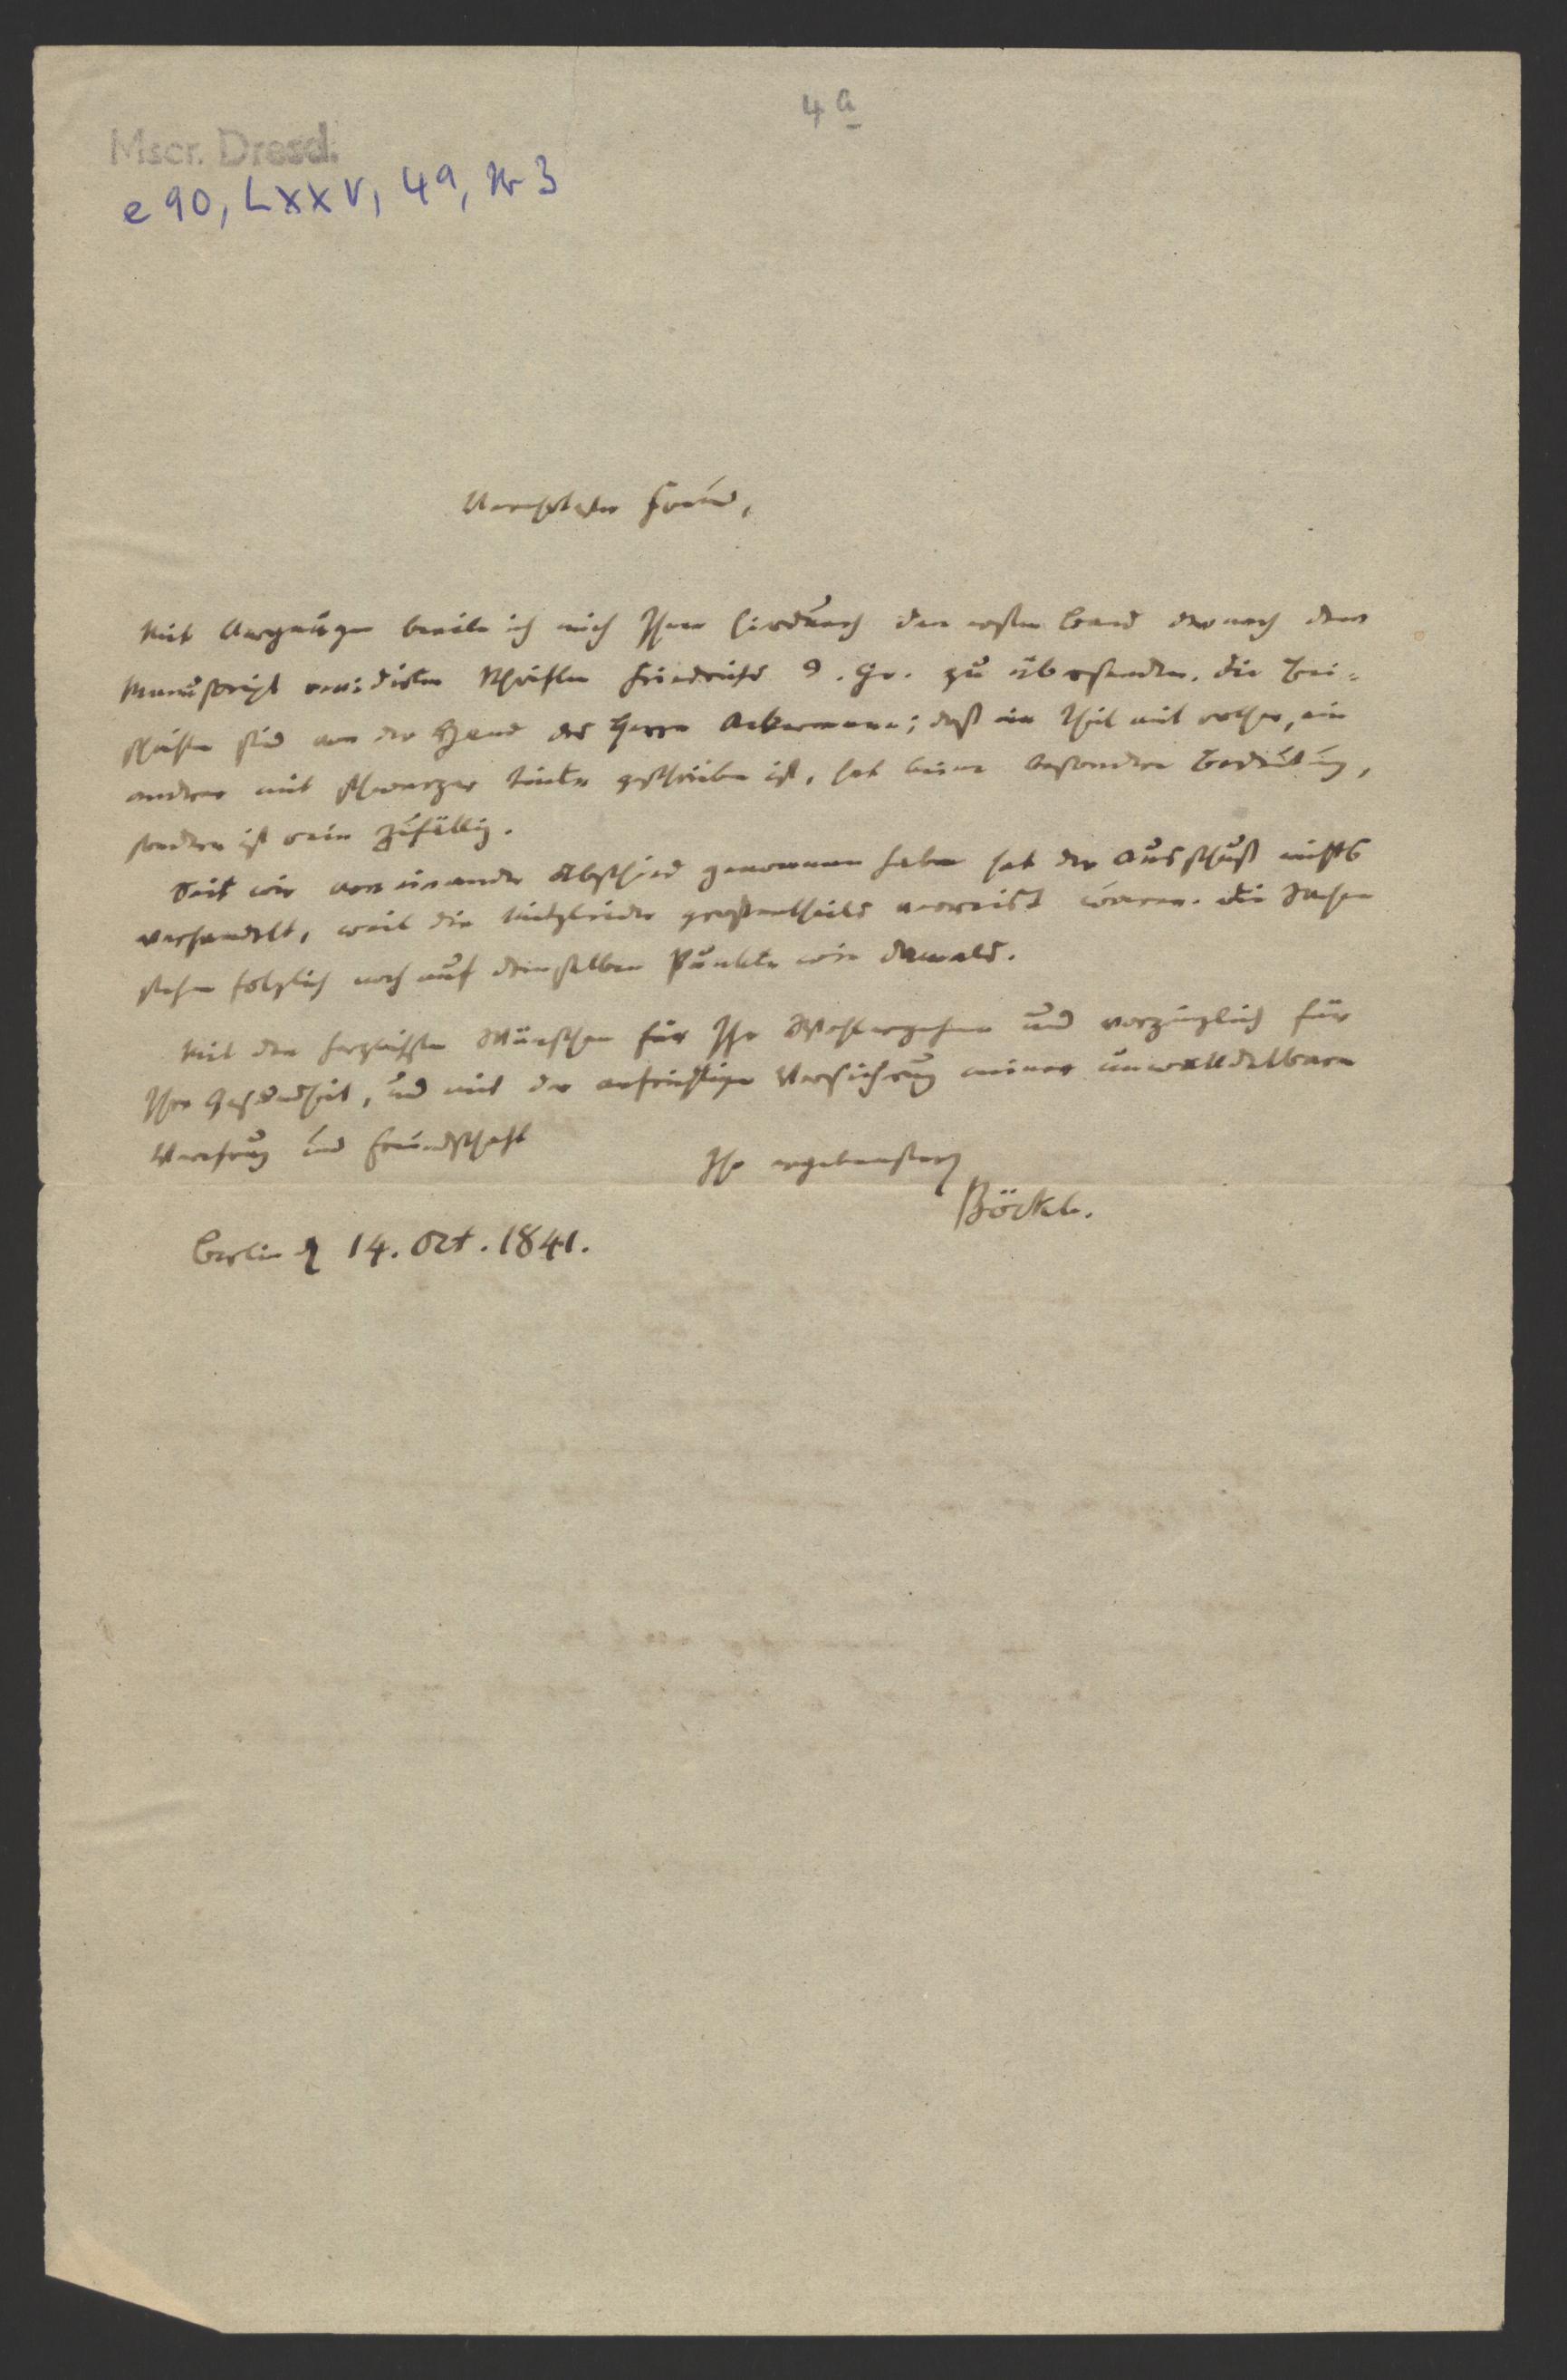 4a
Mscr. Dresd.
e 90, LXXV, 49, Nr 3
Verehrtester Freund,
Mit Vergnügen beeile ich mich Ihnen hierdurch den ersten Band der nach dem
Manuscript revidirten Schriften Friedrichs d. Gr. zu übersenden. Die Bei-
schriften sind von der Hand des Herrn Ackermann; daß ein Theil mit rother, ein
anderer mit schwarzer Tinte geschrieben ist, hat keine besondere Bedeutung,
sondern ist rein zufällig.
Seit wir von einander Abschied genommen haben hat der Ausschuß nichts
verhandelt, weil die Mitglieder großentheils verreist waren. Die Sachen
stehen folglich noch auf demselben Punkte wie damals.
Mit den herzlichsten Wünschen für Ihr Wohlergehen und vorzüglich für
Ihre Gesundheit, und mit der aufrichtigen Versicherung meiner unwandelbaren
Verehrung und Freundschaft
Ihr ergebenster
Böckh.
Berlin d 14. Oct. 1841.